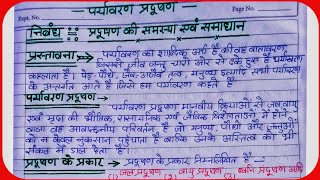 पर्यावरण प्रदूषण
निबंध :- प्रदूषण की समस्या एवं समाधान
प्रस्तावना :- पर्यावरण का शाब्दिक अर्थ है की वह वातावरण
जिससे जीव जन्तु चारों ओर से ढके हुए हैं पर्यावरण
कहलाता है। पेड़, पौधे, जीव-जन्तु, मनुष्य इत्यादि सभी पर्यावरण
के अन्तर्गत आते हैं जिसे हम पर्यावरण कहते हैं
पर्यावरण प्रदूषण :-
पर्यावरण प्रदूषण मानवीय क्रियाओं से जलवायु
एवं मृदा की भौतिक, रासायनिक एवं जैविक विशेषताओं में होने
वाला वह अवांछनीय परिवर्तन है जो मनुष्य, पौधों और जन्तुओं
को न केवल नुकसान पहुँचाता है बल्कि उनके अस्तित्व को भी
संकट में डाल देता है।
प्रदूषण के प्रकार :- प्रदूषण के प्रकार निम्नलिखित हैं -
(1) जल प्रदूषण (2) वायु प्रदूषण (3) ध्वनि प्रदूषण आदि